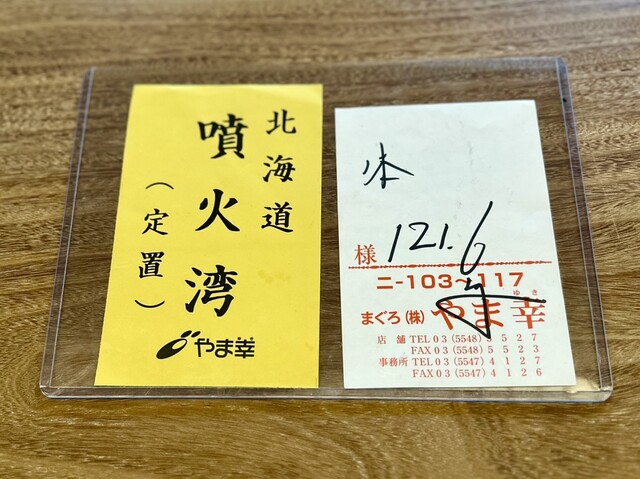 北海道
噴火湾
（定置）
やま幸
本
様 121.6
ニ-103~117
ゆき
まぐろ(株)やま幸
店舗 TEL 03 (5548) 5527
FAX 03 (5548) 5523
事務所 TEL 03 (5547) 4127
FAX 03 (5547) 4126